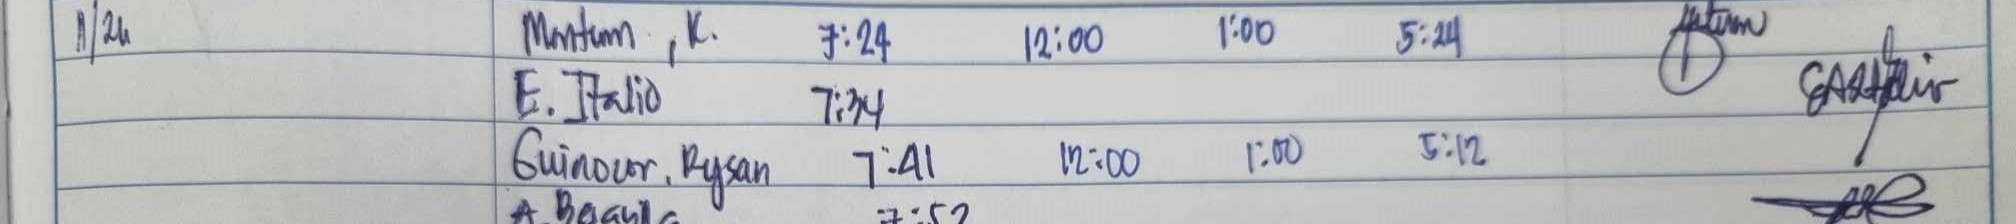 11/24 Mantum, K. 7:24 12:00 1:00 5:24
E. Italio 7:34
Guinocor, Rysan 7:41 12:00 1:00 5:12
A. 7:52